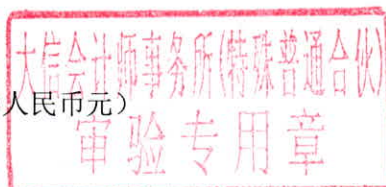 大信会计师事务所(特殊普通合伙)
人民币元）
审验专用章